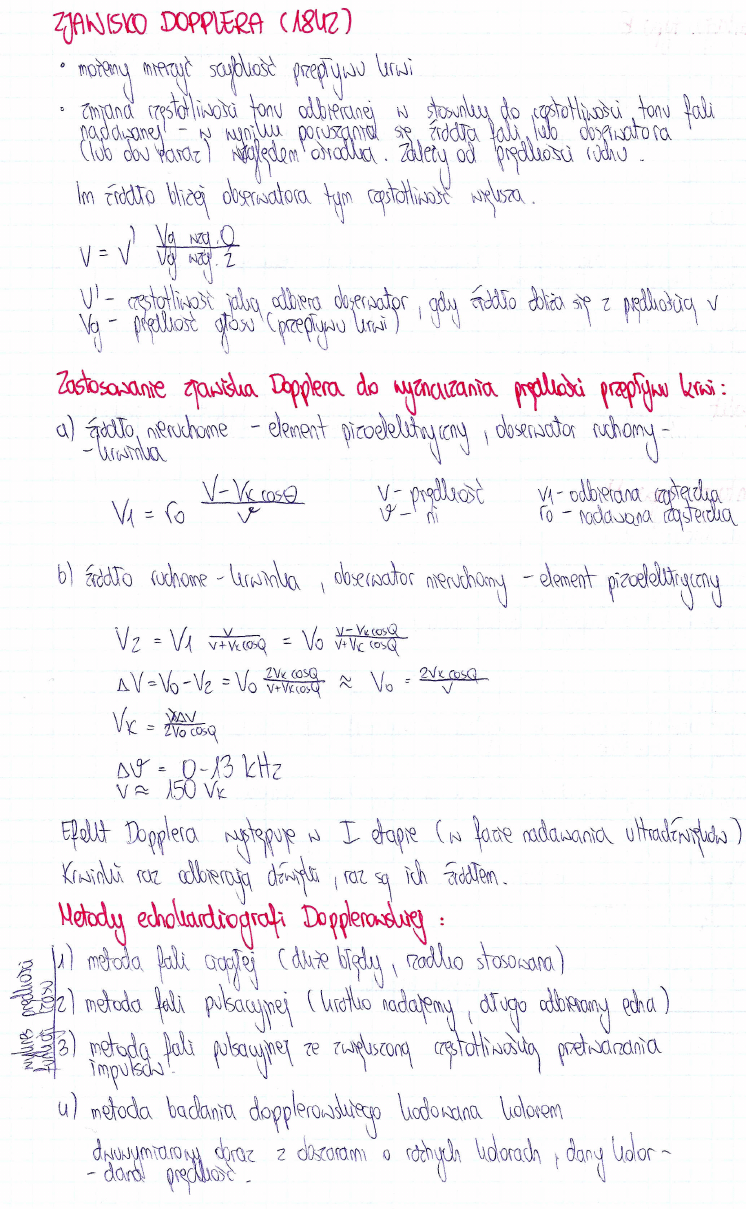 ZJAWISKO DOPPLERA (1842)
• możemy mierzyć szybkość przepływu krwi
• zmiana częstotliwości tonu odbieranej w stosunku do częstotliwości tonu fali
nadawanej - w wyniku poruszania się źródła fali, lub obserwatora
(lub obu naraz) względem ośrodka. Zależy od prędkości ruchu.
Im źródło bliżej obserwatora tym częstotliwość większa.
V = V' Vg wzg. O / Vg wzg. Ź
V' - częstotliwość jaką odbiera obserwator, gdy źródło zbliża się z prędkością v
Vg - prędkość głosu (przepływu krwi)
Zastosowanie zjawiska Dopplera do wyznaczania prędkości przepływu krwi:
a) źródło nieruchome - element pizoelektryczny, obserwator ruchomy -
- krwinka
V1 = ro V - Vk cosθ / v
v - prędkość
ϑ - ni
v1 - odbierana cząsteczka
ro - nadawana cząsteczka
b) źródło ruchome - krwinka, obserwator nieruchomy - element pizoelektryczny
V2 = V1 v / v+Vk cosQ = Vo v-Vk cosQ / v+Vk cosQ
ΔV = Vo - V2 = Vo 2Vk cosQ / v+Vk cosQ ≈ Vo = 2Vk cosQ / v
Vk = VΔV / 2Vo cosQ
Δϑ = 0-13 kHz
v ≈ 150 Vk
Efekt Dopplera występuje w I etapie (w fazie nadawania ultradźwięków)
Krwinki raz odbierają dźwięki, raz są ich źródłem.
Metody echokardiografi Dopplerowskiej:
wykres prędkości
funkcji czasu
1) metoda fali ciągłej (duże błędy, rzadko stosowana)
2) metoda fali pulsacyjnej (krótko nadajemy, długo odbieramy echa)
3) metoda fali pulsacyjnej ze zwiększoną częstotliwością przetwarzania
impulsów.
4) metoda badania dopplerowskiego kodowana kolorem
dwuwymiarowy obraz z obszarami o różnych kolorach, dany kolor -
- dana prędkość.